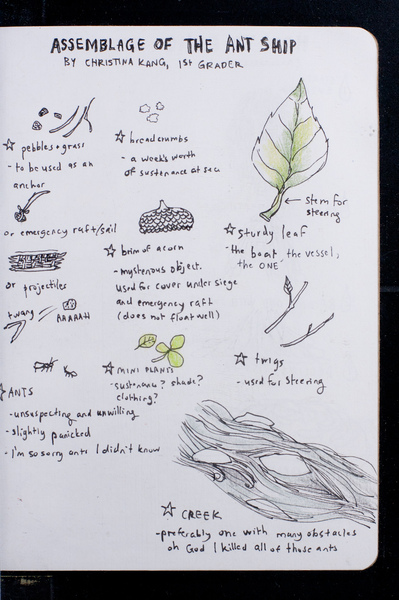 ASSEMBLAGE OF THE ANT SHIP
BY CHRISTINA KANG, 1ST GRADER
pebbles + grass
- to be used as an
anchor
or emergency raft/sail
or projectiles
twang
AAAAAH
breadcrumbs
- a week's worth
of sustenance at sea
brim of acorn
- mysterious object.
used for cover under siege
and emergency raft
(does not float well)
MINI PLANTS
- sustenance? shade?
clothing?
stem for
steering
sturdy leaf
- the boat, the vessel,
the ONE
twigs
- used for steering
ANTS
- unsuspecting and unwilling
- slightly panicked
- I'm so sorry ants I didn't know
CREEK
- preferably one with many obstacles
oh God I killed all of those ants